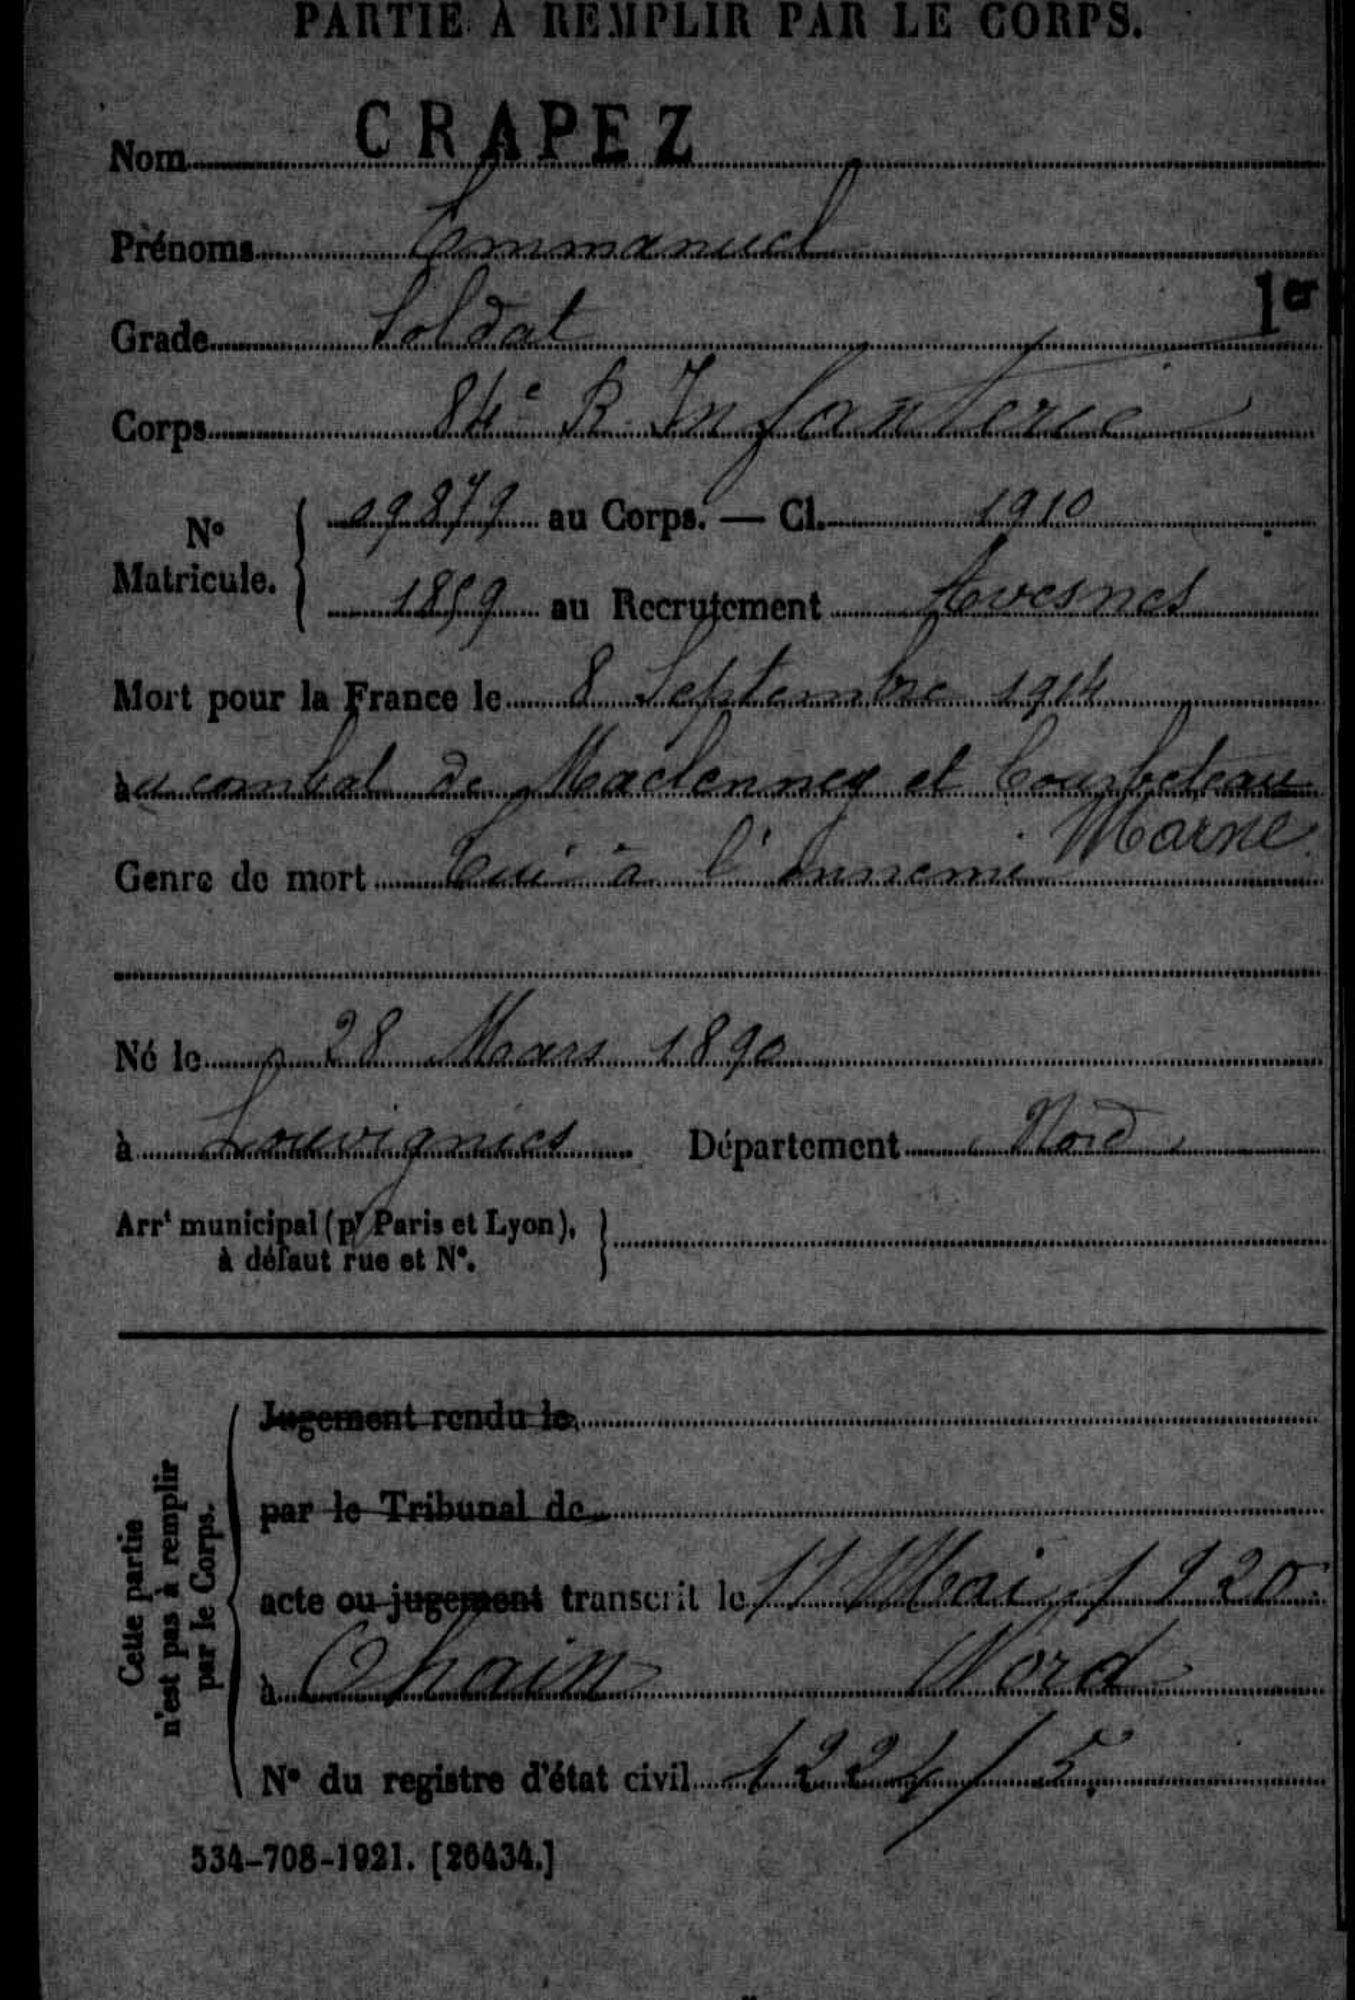 PARTIE À REMPLIR PAR LE CORPS.
Nom CRAPEZ
Prénoms Emmanuel
Grade Soldat 1er
Corps 84e R. Infanterie
N° Matricule. 09879 au Corps. — Cl. 1910
1859 au Recrutement Avesnes
Mort pour la France le 8 Septembre 1914
à combat de Maclenney et Courbeteau
Marne
Genre de mort Tué à l'Ennemi
Né le 28 Mars 1890
à Louvignies Département Nord
Arrt municipal (pr Paris et Lyon),
à défaut rue et N°.
Cette partie
n'est pas à remplir
par le Corps.
Jugement rendu le
par le Tribunal de
acte ou jugement transcrit le 11 Mai 1920
à Ohain Nord
N° du registre d'état civil
534-708-1921. [26434.]